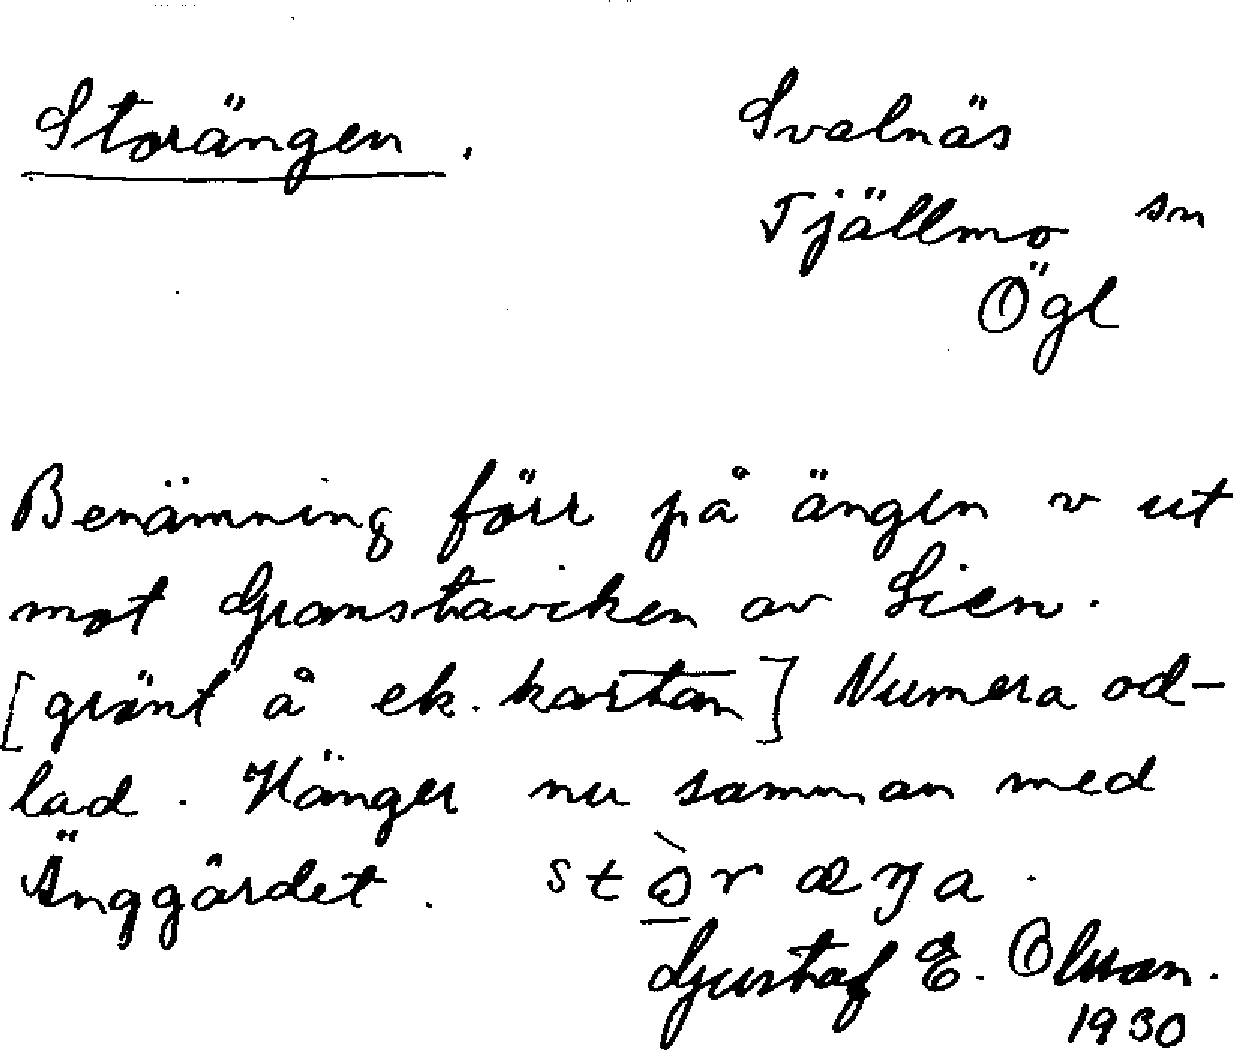 Storängen.
Svalnäs
Tjällmo sn
Ögl
Benämning förr på ängen v ut
mot Granstaviken av Lien.
[grönt å ek. kartan] Numera od-
lad. Hänger nu samman med
Änggärdet. st ɷ̀r æŋa.
Gustaf E. Olsson.
1930